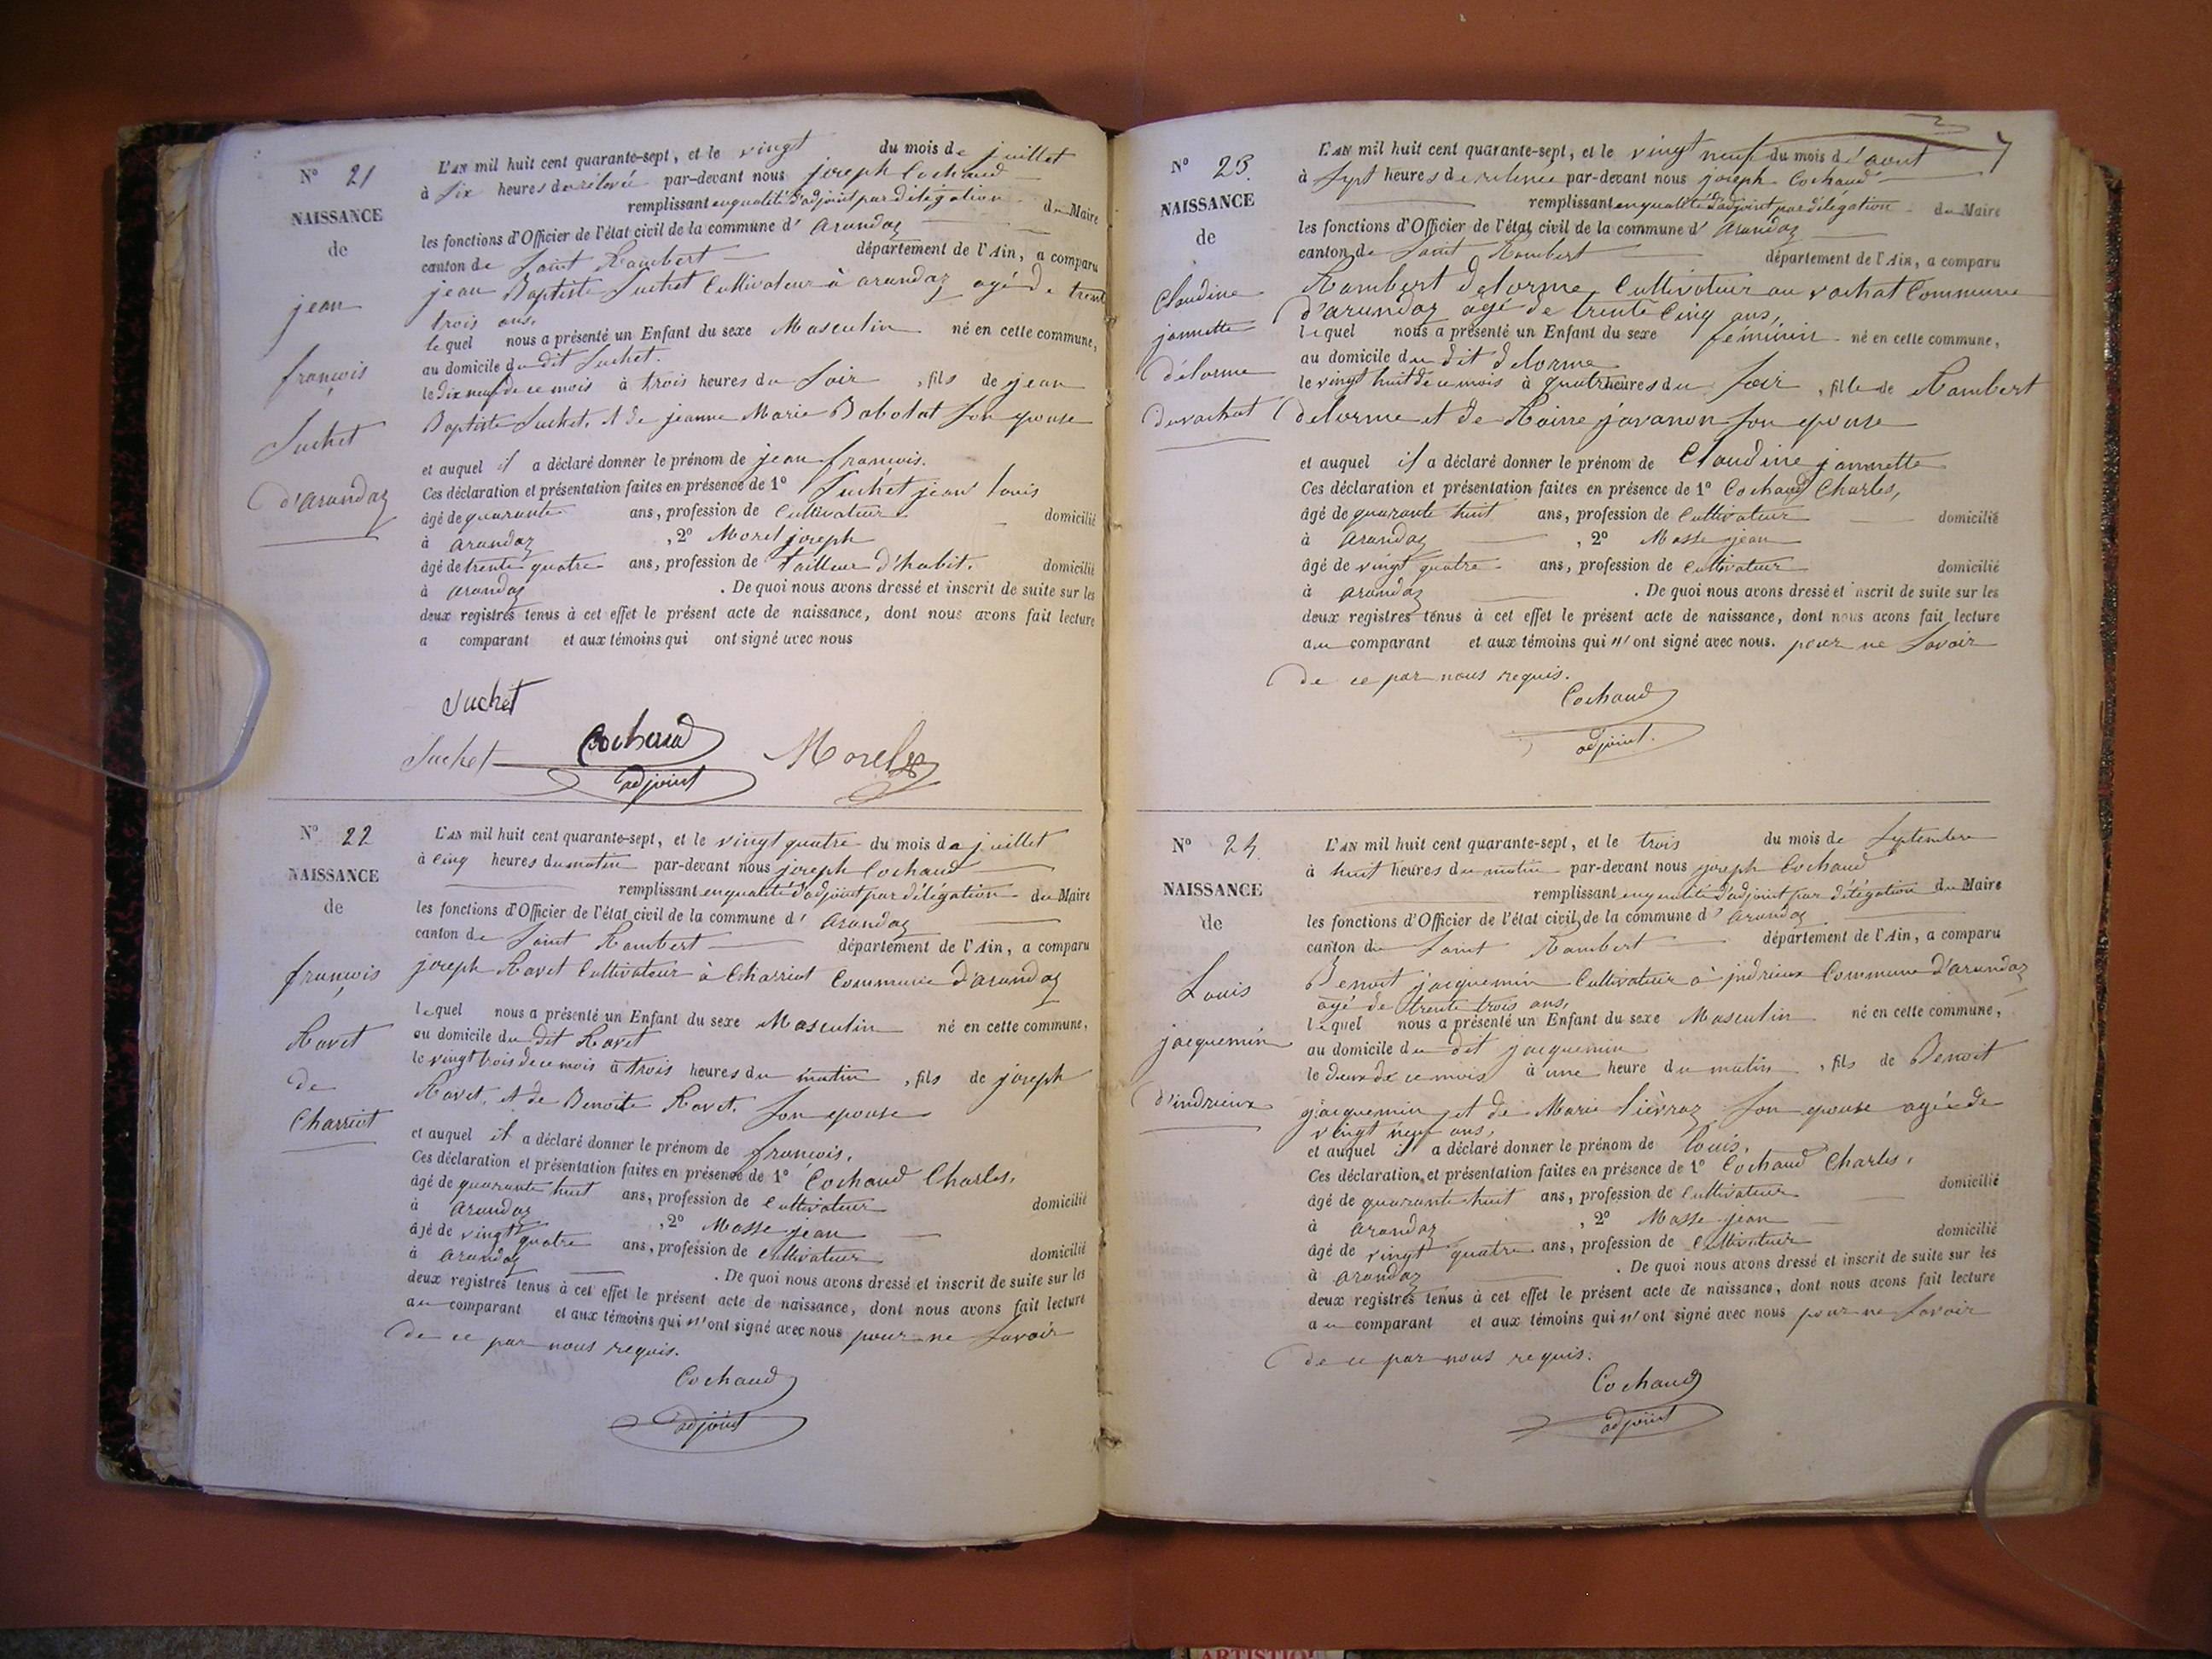 N° 21
NAISSANCE
de
jean
françois
Suchet
d'arandaz
L'an mil huit cent quarante-sept, et le vingt du mois de juillet
à six heures de relevée par-devant nous joseph Cochaud
remplissant en qualité d'adjoint par délégation du Maire
les fonctions d'Officier de l'état civil de la commune d' arandaz
canton de Saint Rambert département de l'Ain, a comparu
jean Baptiste Suchet Cultivateur à arandaz agé de trente
trois ans,
lequel nous a présenté un Enfant du sexe Masculin né en cette commune,
au domicile du dit Suchet.
le dix neuf de ce mois à trois heures du soir, fils de jean
Baptiste Suchet, et de jeanne Marie Babolat son epouse
et auquel il a déclaré donner le prénom de jean francois.
Ces déclaration et présentation faites en présence de 1° Suchet jean louis
âgé de quarante ans, profession de Cultivateur domicilié
à arandaz, 2° Morel joseph
âgé de trente quatre ans, profession de tailleur d'habit. domicilié
à arandaz. De quoi nous avons dressé et inscrit de suite sur les
deux registres tenus à cet effet le présent acte de naissance, dont nous avons fait lecture
a comparant et aux témoins qui ont signé avec nous
Suchet
Suchet Cochaud Morel
adjoint
N° 22
NAISSANCE
de
françois
Ravet
de
Charriot
L'an mil huit cent quarante-sept, et le vingt quatre du mois de juillet
à cinq heures du matin par-devant nous joseph Cochaud
remplissant en qualité d'adjoint par délégation du Maire
les fonctions d'Officier de l'état civil de la commune d' arandaz
canton de Saint Rambert département de l'Ain, a comparu
joseph Ravet Cultivateur à Charriot Commune d'arandaz
lequel nous a présenté un Enfant du sexe Masculin né en cette commune,
au domicile du dit Ravet
le vingt trois de ce mois à trois heures du matin, fils de joseph
Ravet, et de Benoite Ravet. son epouse
et auquel il a déclaré donner le prénom de francois.
Ces déclaration et présentation faites en présence de 1° Cochaud Charles,
âgé de quarante huit ans, profession de Cultivateur domicilié
à arandaz, 2° Masse jean
âgé de vingt quatre ans, profession de Cultivateur domicilié
à arandaz. De quoi nous avons dressé et inscrit de suite sur les
deux registres tenus à cet effet le présent acte de naissance, dont nous avons fait lecture
au comparant et aux témoins qui n'ont signé avec nous pour ne savoir
de ce par nous requis.
Cochaud
adjoint
7
N° 23.
NAISSANCE
de
Claudine
jannette
délorme
du vachat
L'an mil huit cent quarante-sept, et le vingt neuf du mois d'aout
à sept heures de relevée par-devant nous joseph Cochaud
remplissant en qualité d'adjoint par délégation du Maire
les fonctions d'Officier de l'état civil de la commune d' arandaz
canton de Saint Rambert département de l'Ain, a comparu
Rambert delorme, Cultivateur au vachat Commune
d'arandaz agé de trente cinq ans,
lequel nous a présenté un Enfant du sexe féminin né en cette commune,
au domicile du dit delorme
le vingt huit de ce mois à quatre heures du soir, fille de Rambert
delorme et de Reine javanon son epouse
et auquel il a déclaré donner le prénom de Claudine jannette
Ces déclaration et présentation faites en présence de 1° Cochaud Charles,
âgé de quarante huit ans, profession de Cultivateur domicilié
à arandaz, 2° Masse jean
âgé de vingt quatre ans, profession de Cultivateur domicilié
à arandaz. De quoi nous avons dressé et inscrit de suite sur les
deux registres tenus à cet effet le présent acte de naissance, dont nous avons fait lecture
au comparant et aux témoins qui n'ont signé avec nous. pour ne savoir
de ce par nous requis.
Cochaud
adjoint.
N° 24.
NAISSANCE
de
Louis
jacquemin
d'indrieux
L'an mil huit cent quarante-sept, et le trois du mois de Septembre
à huit heures du matin par-devant nous joseph Cochaud
remplissant en qualité d'adjoint par délégation du Maire
les fonctions d'Officier de l'état civil de la commune d' arandaz
canton de Saint Rambert département de l'Ain, a comparu
Benoit jacquemin Cultivateur à jndrieux Commune d'arandaz
agé de trente trois ans,
lequel nous a présenté un Enfant du sexe Masculin né en cette commune,
au domicile du dit jacquemin
le deux de ce mois à une heure du matin, fils de Benoit
jacquemin et de Marie lièvraz son epouse agée de
vingt neuf ans,
et auquel il a déclaré donner le prénom de louis.
Ces déclaration et présentation faites en présence de 1° Cochaud Charles,
âgé de quarante huit ans, profession de Cultivateur domicilié
à arandaz, 2° Masse jean
âgé de vingt quatre ans, profession de Cultivateur domicilié
à arandaz. De quoi nous avons dressé et inscrit de suite sur les
deux registres tenus à cet effet le présent acte de naissance, dont nous avons fait lecture
au comparant et aux témoins qui n'ont signé avec nous pour ne savoir
de ce par nous requis.
Cochaud
adjoint